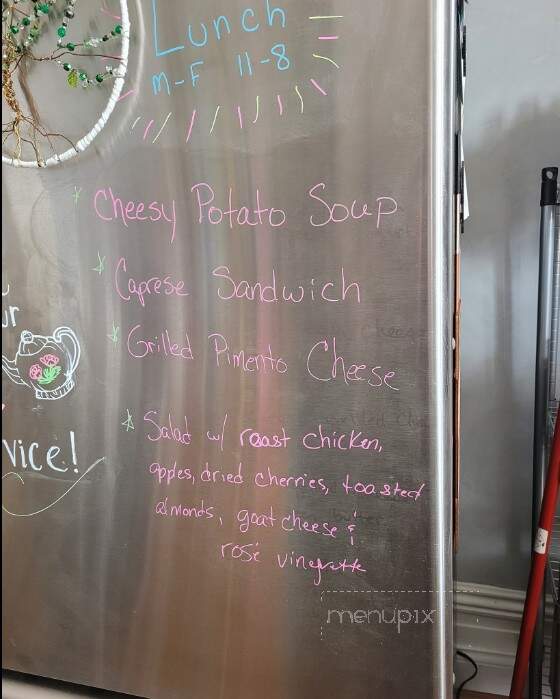 Lunch
M-F 11-8
Cheesy Potato Soup
Caprese Sandwich
Grilled Pimento Cheese
Salad w/ roast chicken,
apples, dried cherries, toasted
almonds, goat cheese &
rosé vinegrette
ur
vice!
menupix